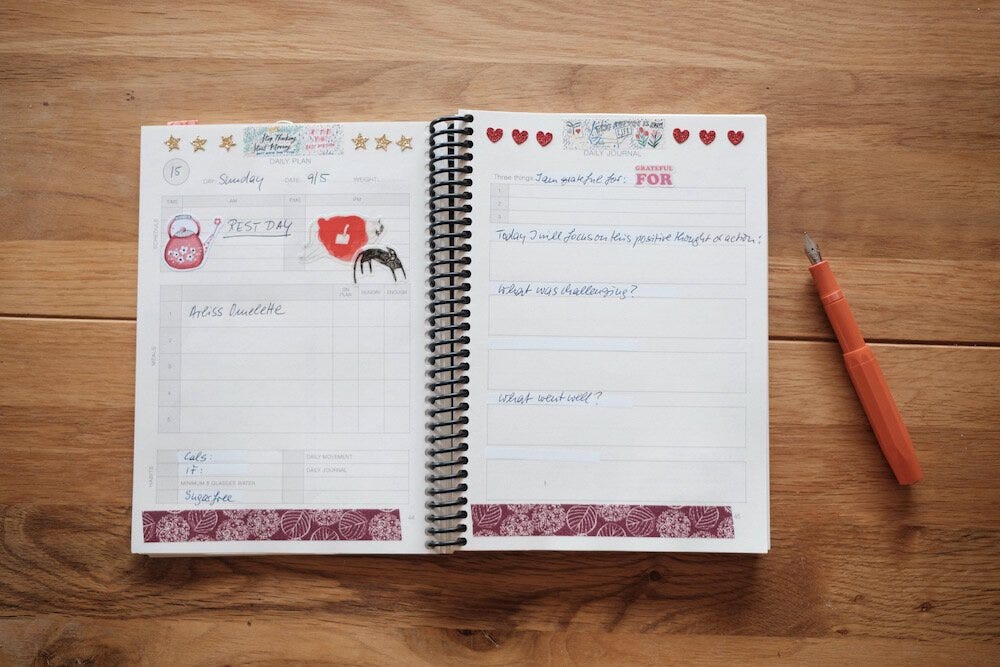 Stop Thinking
Start Moving
DAILY PLAN
15
DAY: Sunday DATE: 9/5 WEIGHT:
TIME AM TIME PM
SCHEDULE
REST DAY
ON PLAN HUNGRY ENOUGH
MEALS
1 Arliss Omelette
2
3
4
5
HABITS
Cals: DAILY MOVEMENT
IF: DAILY JOURNAL
MINIMUM 8 GLASSES WATER
Sugarfree
44
DAILY JOURNAL
Three things I am grateful for: GRATEFUL FOR
1
2
3
Today I will focus on this positive thought or action:
What was challenging?
What went well?
45